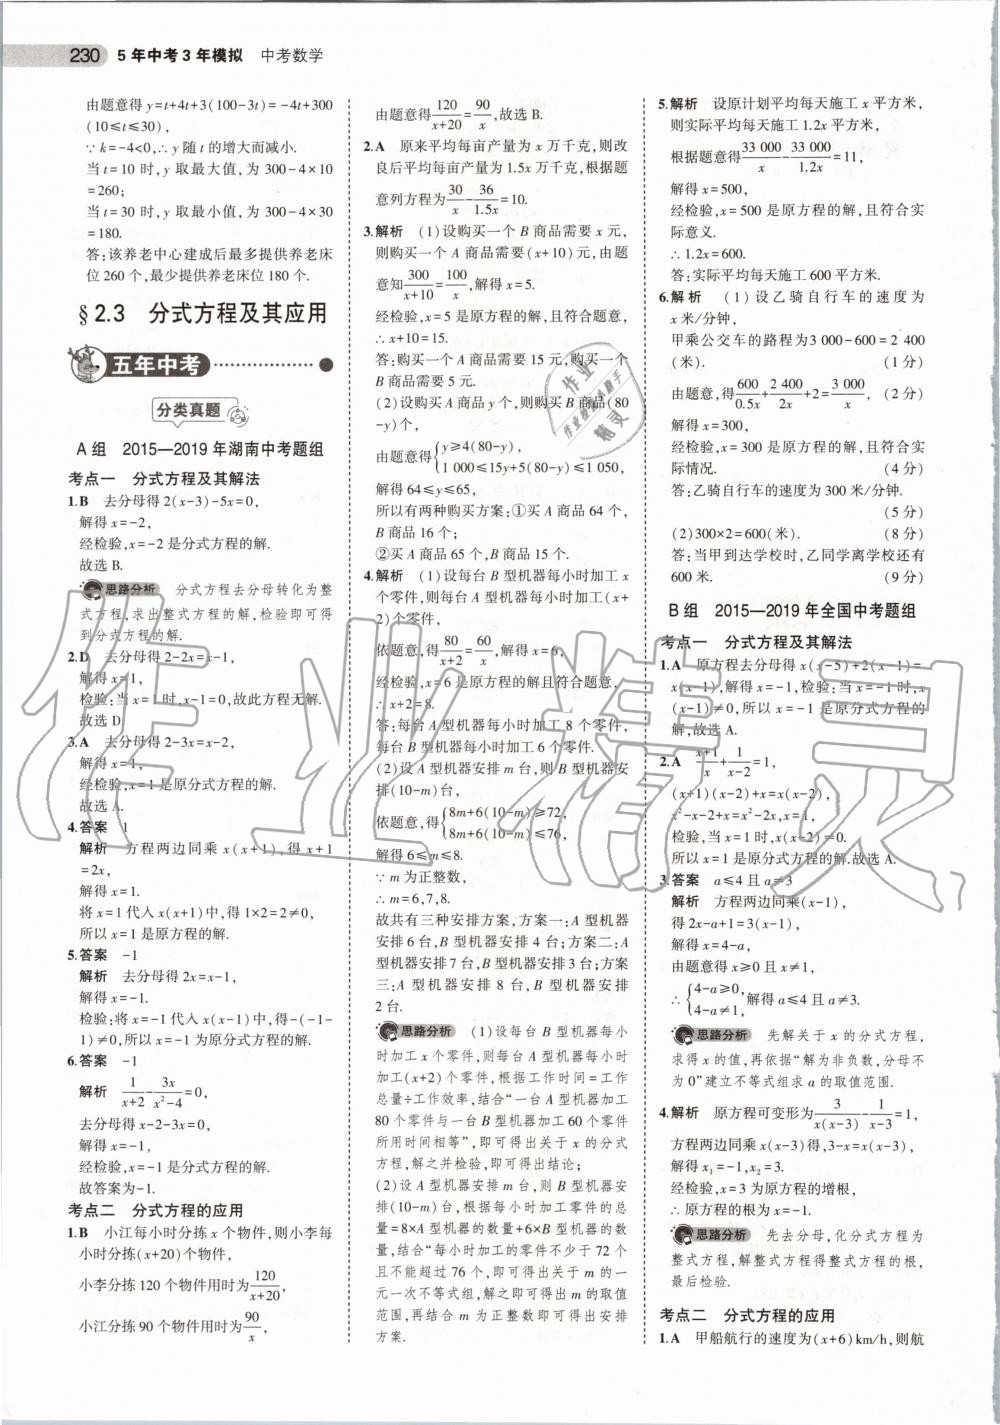 230 5年中考3年模拟 中考数学
由题意得y=t+4t+3(100-3t)=-4t+300
(10≤t≤30),
∵k=-4<0,∴y随t的增大而减小.
当t=10时,y取最大值,为300-4×10
=260;
当t=30时,y取最小值,为300-4×30
=180.
答:该养老中心建成后最多提供养老床
位260个,最少提供养老床位180个.
§2.3 分式方程及其应用
五年中考
分类真题
A组 2015—2019年湖南中考题组
考点一 分式方程及其解法
1.B 去分母得2(x-3)-5x=0,
解得x=-2,
经检验,x=-2是分式方程的解.
故选B.
思路分析 分式方程去分母转化为整
式方程,求出整式方程的解,检验即可得
到分式方程的解.
2.D 去分母得2-2x=x-1,
解得x=1,
检验:当x=1时,x-1=0,故此方程无解.
故选D.
3.A 去分母得2-3x=x-2,
解得x=1,
经检验,x=1是原分式方程的解.
故选A.
4.答案 1
解析 方程两边同乘x(x+1),得x+1
=2x,
解得x=1.
将x=1代入x(x+1)中,得1×2=2≠0,
所以x=1是原方程的解.
5.答案 -1
解析 去分母得2x=x-1,
解得x=-1.
检验:将x=-1代入x(x-1)中,得-(-1-
1)=2≠0,故x=-1为原分式方程的解.
6.答案 -1
解析 1/(x+2)-3x/(x²-4)=0,
去分母得x-2-3x=0,
解得x=-1,
经检验,x=-1是分式方程的解.
故答案为-1.
考点二 分式方程的应用
1.B 小江每小时分拣x个物件,则小李每
小时分拣(x+20)个物件,
小李分拣120个物件用时为120/(x+20),
小江分拣90个物件用时为90/x,
由题意得120/(x+20)=90/x,故选B.
2.A 原来平均每亩产量为x万千克,则改
良后平均每亩产量为1.5x万千克,根据题
意列方程为30/x-36/1.5x=10.
3.解析 (1)设购买一个B商品需要x元,
则购买一个A商品需要(x+10)元,由题
意知300/(x+10)=100/x,解得x=5.
经检验,x=5是原方程的解,且符合题意,
∴x+10=15.
答:购买一个A商品需要15元,购买一个
B商品需要5元.
(2)设购买A商品y个,则购买B商品(80
-y)个,
由题意得{y≥4(80-y),
1 000≤15y+5(80-y)≤1 050,
解得64≤y≤65,
所以有两种购买方案:①买A商品64个,
B商品16个;
②买A商品65个,B商品15个.
4.解析 (1)设每台B型机器每小时加工x
个零件,则每台A型机器每小时加工(x+
2)个零件,
依题意,得80/(x+2)=60/x,解得x=6,
经检验,x=6是原方程的解且符合题意,
∴x+2=8.
答:每台A型机器每小时加工8个零件,
每台B型机器每小时加工6个零件.
(2)设A型机器安排m台,则B型机器安
排(10-m)台,
依题意,得{8m+6(10-m)≥72,
8m+6(10-m)≤76,
解得6≤m≤8.
∵m为正整数,
∴m=6,7,8.
故共有三种安排方案,方案一:A型机器
安排6台,B型机器安排4台;方案二:A
型机器安排7台,B型机器安排3台;方案
三:A型机器安排8台,B型机器安排
2台.
思路分析 (1)设每台B型机器每小
时加工x个零件,则每台A型机器每小时
加工(x+2)个零件,根据工作时间=工作
总量÷工作效率,结合“一台A型机器加工
80个零件与一台B型机器加工60个零件
所用时间相等”,即可得出关于x的分式
方程,解之并检验,即可得出结论;
(2)设A型机器安排m台,则B型机器
安排(10-m)台,根据每小时加工零件的
总量=8×A型机器的数量+6×B型机器的数
量,结合“每小时加工的零件不少于72个
且不能超过76个,即可得出关于m的一
元一次不等式组,解之即可得出m的取值
范围,再结合m为正整数即可得出安排
方案.
5.解析 设原计划平均每天施工x平方米,
则实际平均每天施工1.2x平方米,
根据题意得33 000/x-33 000/1.2x=11,
解得x=500,
经检验,x=500是原方程的解,且符合实
际意义.
∴1.2x=600.
答:实际平均每天施工600平方米.
6.解析 (1)设乙骑自行车的速度为
x米/分钟,
甲乘公交车的路程为3 000-600=2 400
(米). (1分)
由题意,得600/0.5x+2 400/2x+2=3 000/x, (2分)
解得x=300,
经检验,x=300是原方程的解,且符合实
际情况. (4分)
答:乙骑自行车的速度为300米/分钟.
(5分)
(2)300×2=600(米). (8分)
答:当甲到达学校时,乙同学离学校还有
600米. (9分)
B组 2015—2019年全国中考题组
考点一 分式方程及其解法
1.A 原方程去分母得x(x-5)+2(x-1)=
x(x-1),解得x=-1,检验:当x=-1时,x
(x-1)≠0,所以x=-1是原分式方程的
解,故选A.
2.A (x+1)/x+1/(x-2)=1,
(x+1)(x-2)+x=x(x-2),
x²-x-2+x=x²-2x,x=1,
检验,当x=1时,x(x-2)≠0.
所以x=1是原分式方程的解.故选A.
3.答案 a≤4且a≠3
解析 方程两边同乘(x-1),
得2x-a+1=3(x-1),
解得x=4-a,
由题意得x≥0且x≠1,
∴{4-a≥0,
4-a≠1,解得a≤4且a≠3.
思路分析 先解关于x的分式方程,
求得x的值,再依据“解为非负数,分母不
为0”建立不等式组求a的取值范围.
4.解析 原方程可变形为3/(x(x-3))-1/(x-3)=1,
方程两边同乘x(x-3)得,3-x=x(x-3),
解得x₁=-1,x₂=3.
经检验,x=3为原方程的增根,
∴原方程的根为x=-1.
思路分析 先去分母,化分式方程为
整式方程,解整式方程得整式方程的根,
最后检验.
考点二 分式方程的应用
1.A 甲船航行的速度为(x+6)km/h,则航
作业精灵